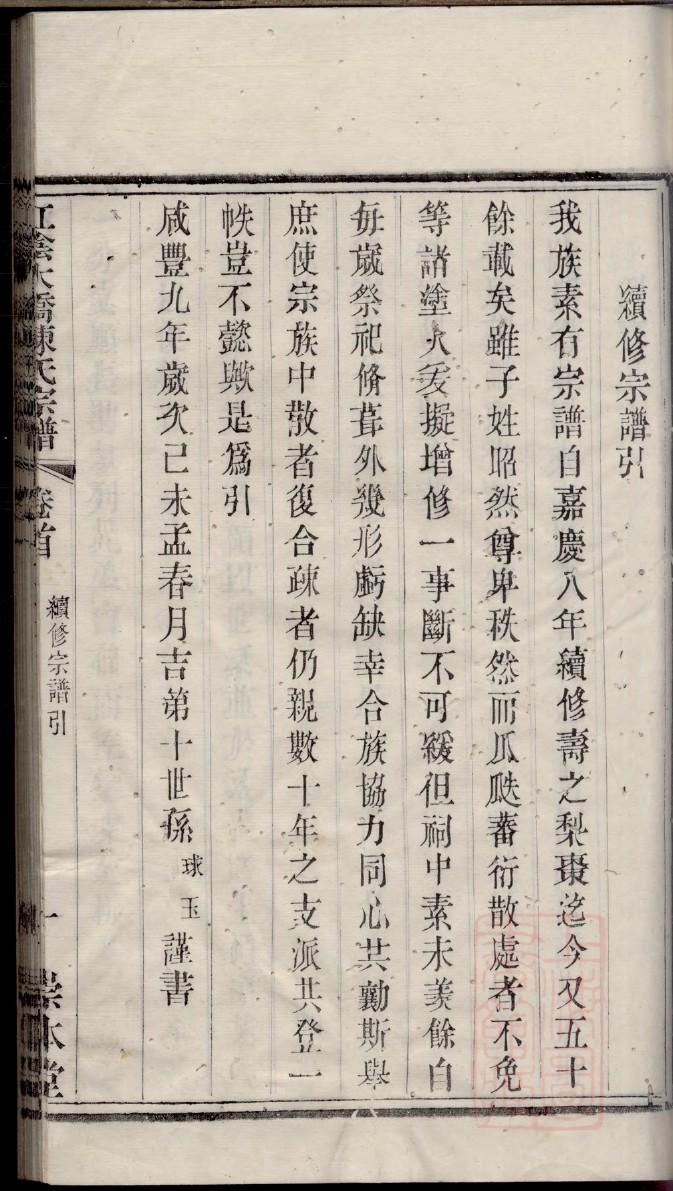 續修宗譜引
我族素有宗譜自嘉慶八年續修壽之梨棗迄今又五十
餘載矣雖子姓昭然尊卑秩然而瓜瓞蕃衍散處者不免
等諸塗人爰擬增修一事斷不可緩但祠中素未羡餘自
每歲祭祀脩葺外幾形虧缺幸合族協力同心共勷斯舉
庶使宗族中散者復合疎者仍親數十年之支派共登一
帙豈不懿歟是爲引
咸豐九年歲次己未孟春月吉第十世孫球玉謹書
江陰大橋陳氏宗譜
卷首
續修宗譜引
一
崇本堂